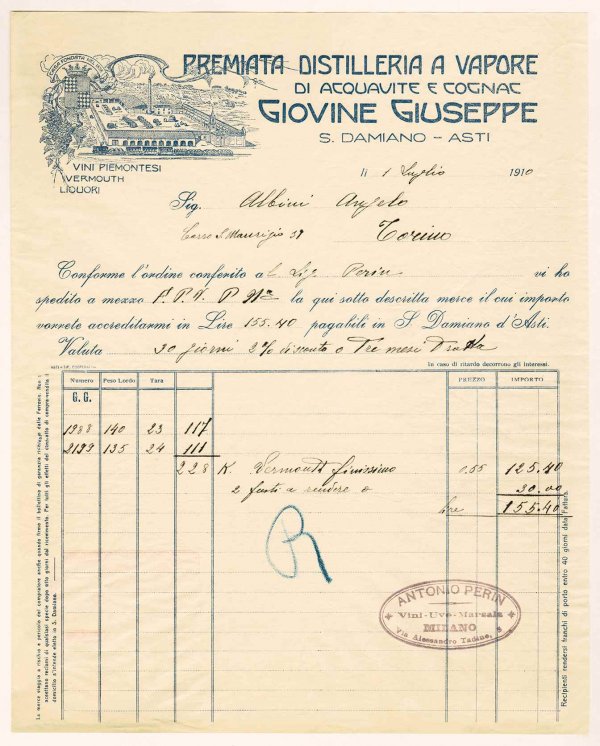 CASA FONDATA NEL
PREMIATA DISTILLERIA A VAPORE
DI ACQUAVITE E COGNAC
GIOVINE GIUSEPPE
S. DAMIANO - ASTI
VINI PIEMONTESI
VERMOUTH
LIQUORI
li 1 Luglio 1910
Sig. Albini Angelo
Corso S. Maurizio 37 Torino
Conforme l'ordine conferito al Sig. Perin vi ho
spedito a mezzo P. V. la qui sotto descritta merce il cui importo
vorrete accreditarmi in Lire 155.40 pagabili in S Damiano d'Asti.
Valuta 30 giorni 2% di sconto o Tre mesi Tratta
In caso di ritardo decorrono gli interessi.
Numero Peso Lordo Tara PREZZO IMPORTO
G. G.
1988 140 23 117
2199 135 24 111
228 K Vermouth finissimo 0,55 125.40
2 fusti a rendere a 30.00
Lire 155.40
ANTONIO PERIN
Vini-Uve-Marsala
MILANO
Via Alessandro Tadino, 8
La merce viaggia a rischio e pericolo del compratore anche quando firma il bollettino di garanzia richiesto dalle Ferrovie. Non si
accettano reclami di qualsiasi specie dopo otto giorni dal ricevimento. Per tutti gli effetti del contratto di compra-vendita il
domicilio s'intende eletto in S. Damiano.
Recipienti rendersi franchi di porto entro 40 giorni data Fattura.